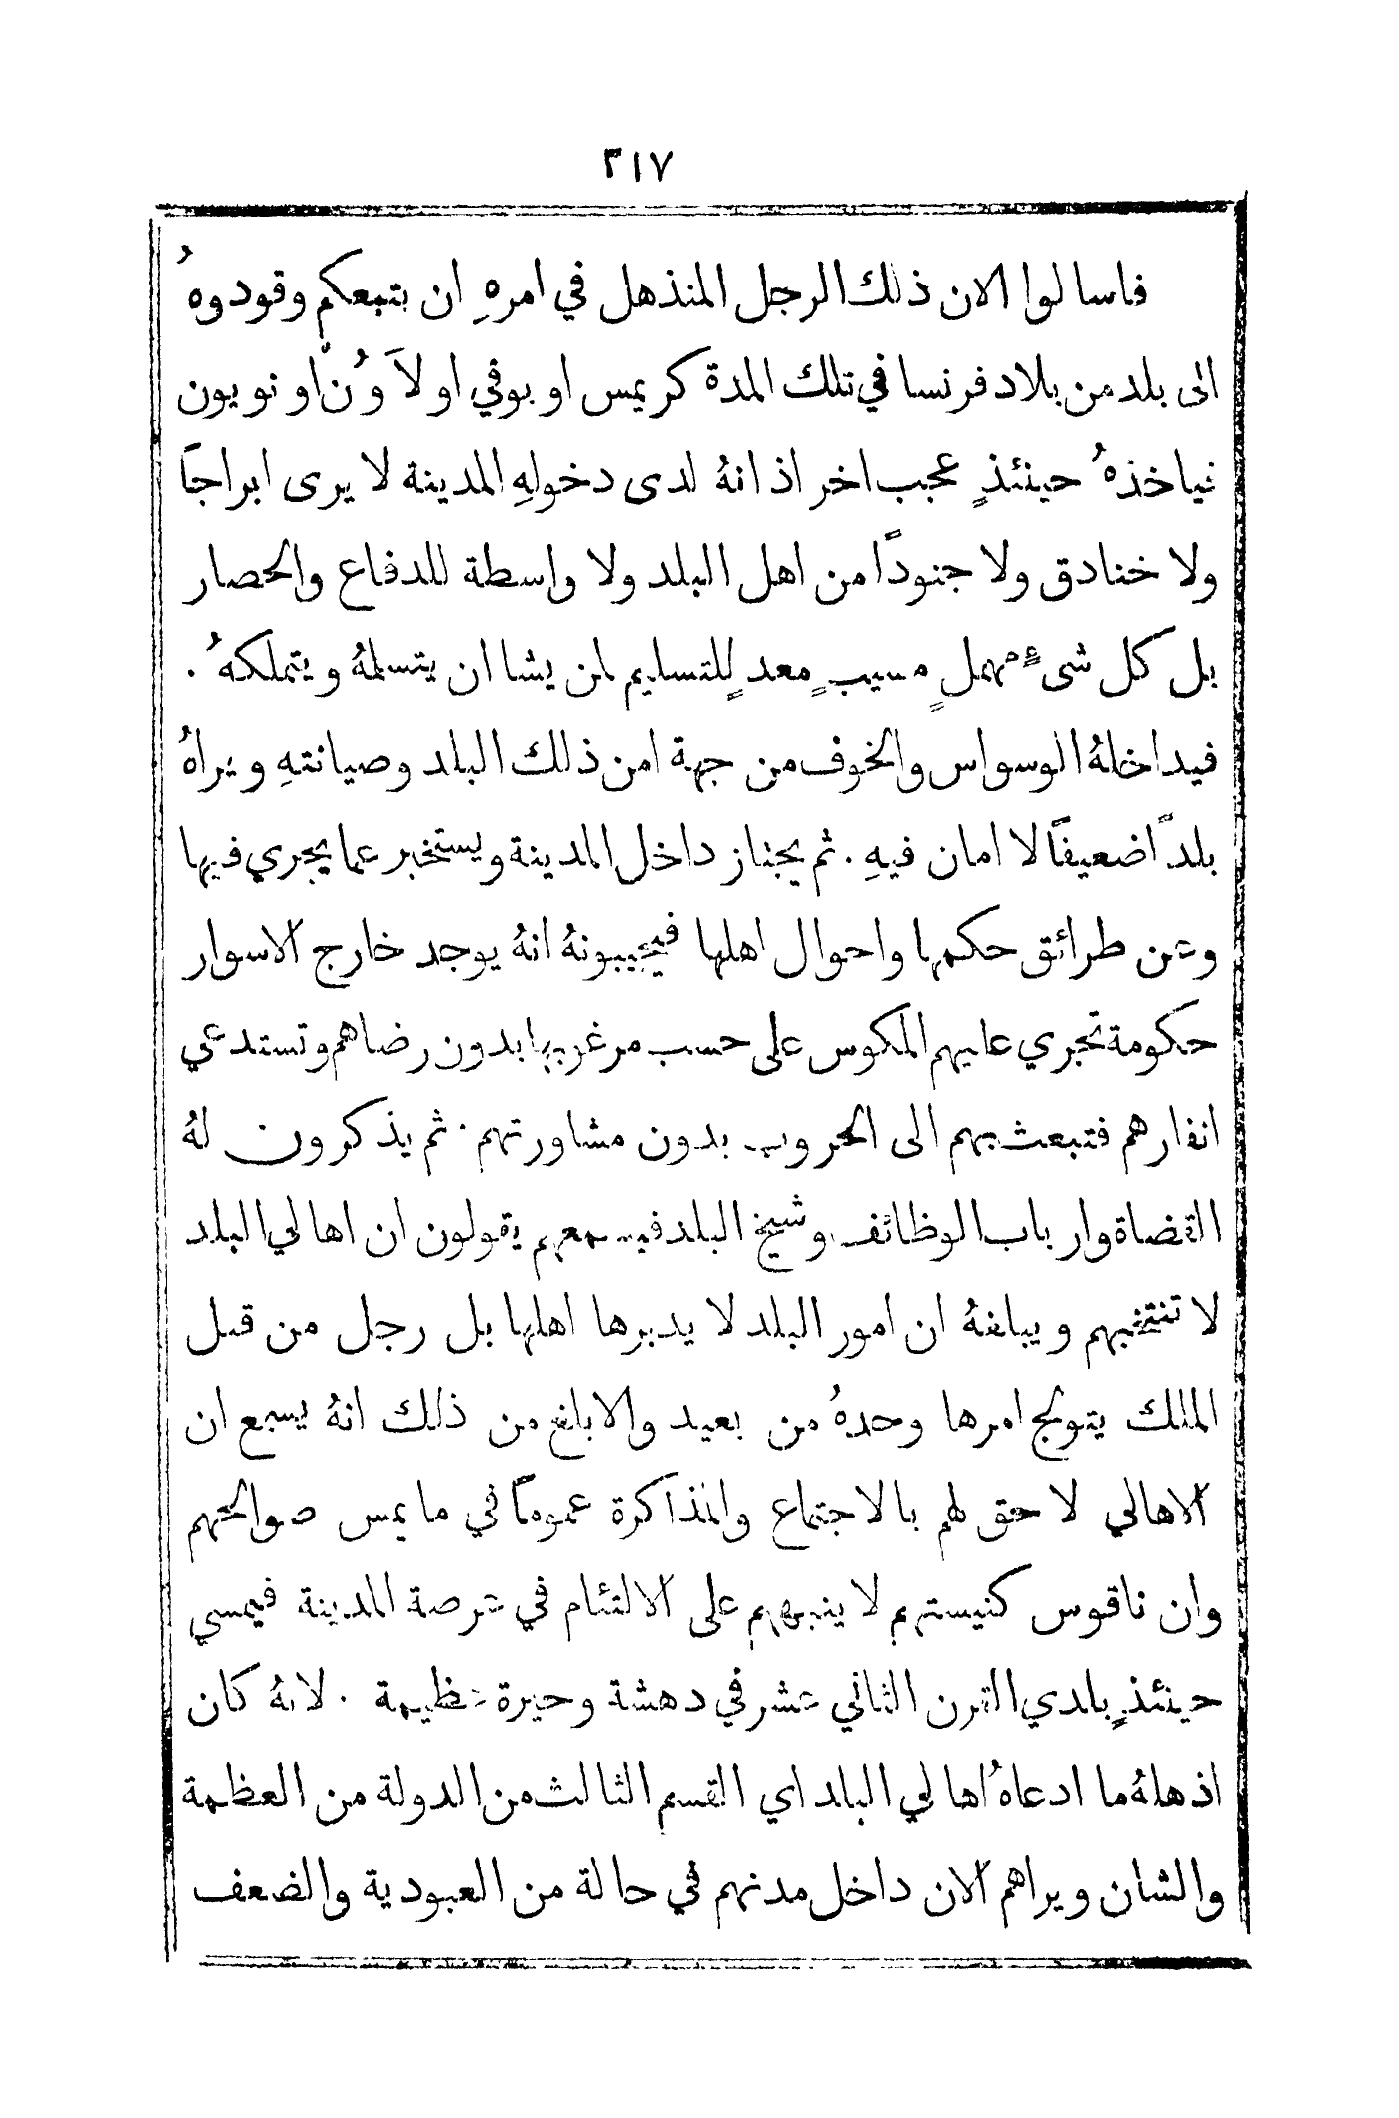 ٣١٧
فاسالوا الان ذلك الرجل المنذهل في امرهِ ان يتبعكم وقودوهُ
الى بلد من بلاد فرنسا في تلك المدة كريمس او بوفي او لَاوُنّ او نويون
فياخذهُ حينئذٍ عجب اخر اذ انهُ لدى دخولهِ المدينة لا يرى ابراجاً
ولا خنادق ولا جنوداً من اهل البلد ولا واسطة للدفاع والحصار
بل كل شىءٍ مهملٍ مسيبٍ معدٍ للتسليم لمن يشا ان يتسلمهُ ويتملكهُ .
فيداخلهُ الوسواس والخوف من جهة امن ذلك البلد وصيانتهِ ويراهُ
بلداً ضعيفاً لا امان فيهِ . ثم يجتاز داخل المدينة ويستخبر عما يجري فيها
وعن طرائق حكمها واحوال اهلها فيجيبونهُ انهُ يوجد خارج الاسوار
حكومة تجري عليهم المكوس على حسب مرغوبها بدون رضاهم وتستدعي
انفارهم فتبعث بهم الى الحروب بدون مشاورتهم . ثم يذكرون لهُ
القضاة وارباب الوظائف وشيخ البلد فيسمعهم يقولون ان اهالي البلد
لا تنتخبهم ويبلغهُ ان امور البلد لا يدبرها اهلها بل رجل من قبل
الملك يتولج امرها وحدهُ من بعيد والابلغ من ذلك انهُ يسمع ان
الاهالي لا حق لهم بالاجتماع والمذاكرة عموماً في ما يمس صوالحهم
وان ناقوس كنيستهم لا ينبههم على الالتئام في عرصة المدينة فيمسي
حينئذٍ بلدي القرن الثاني عشر في دهشة وحيرة عظيمة . لانهُ كان
اذهلهُ ما ادعاهُ اهالي البلد اي القسم الثالث من الدولة من العظمة
والشان ويراهم الان داخل مدنهم في حالة من العبودية والضعف